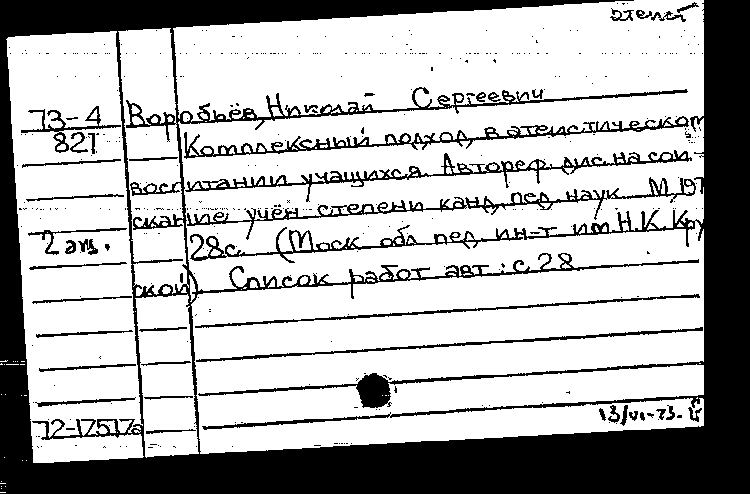 атеист
73-4 Воробьёв, Николай Сергеевич
821 Комплексный подход в атеистическом
воспитании учащихся. Автореф. дис. на сои-
скание учён. степени канд. пед. наук. М, 197
2 экз. 28с. (Моск обл пед. ин-т им Н.К. Кру
ской). Список работ авт.: с. 28
72-17517а 13/VI-73.